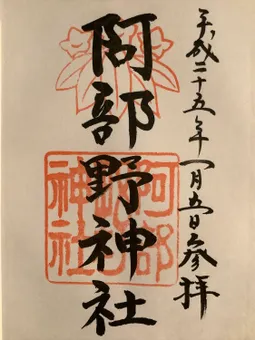 平成二十五年一月五日参拝
阿部野神社
阿部野神社